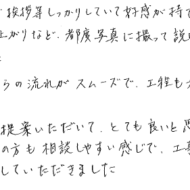 挨拶等しっかりしていて好感が持て
上がりなど、都度写真に撮って説
らの流れがスムーズで、工程も
提案いただいて、とても良いと思
の方も相談しやすい感じで、工事
していただきました